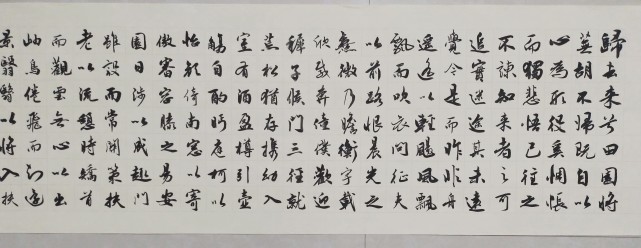 歸去來兮田園將
蕪胡不歸既自以
心為形役奚惆悵
而獨悲悟已往之
不諫知來者之可
追實迷途其未遠
覺今是而昨非舟
遙遙以輕颺風飄
飄而吹衣問征夫
以前路恨晨光之
熹微乃瞻衡宇載
欣載奔僮僕歡迎
稚子候門三徑就
荒松猶存攜幼入
室有酒盈樽引壺
觴自酌眄庭柯以
怡顏倚南窗以寄
傲審容膝之易安
園日涉以成趣門
雖設而常關策扶
老以流憩時矯首
而觀雲無心以出
岫鳥倦飛而知還
景翳翳以將入扶